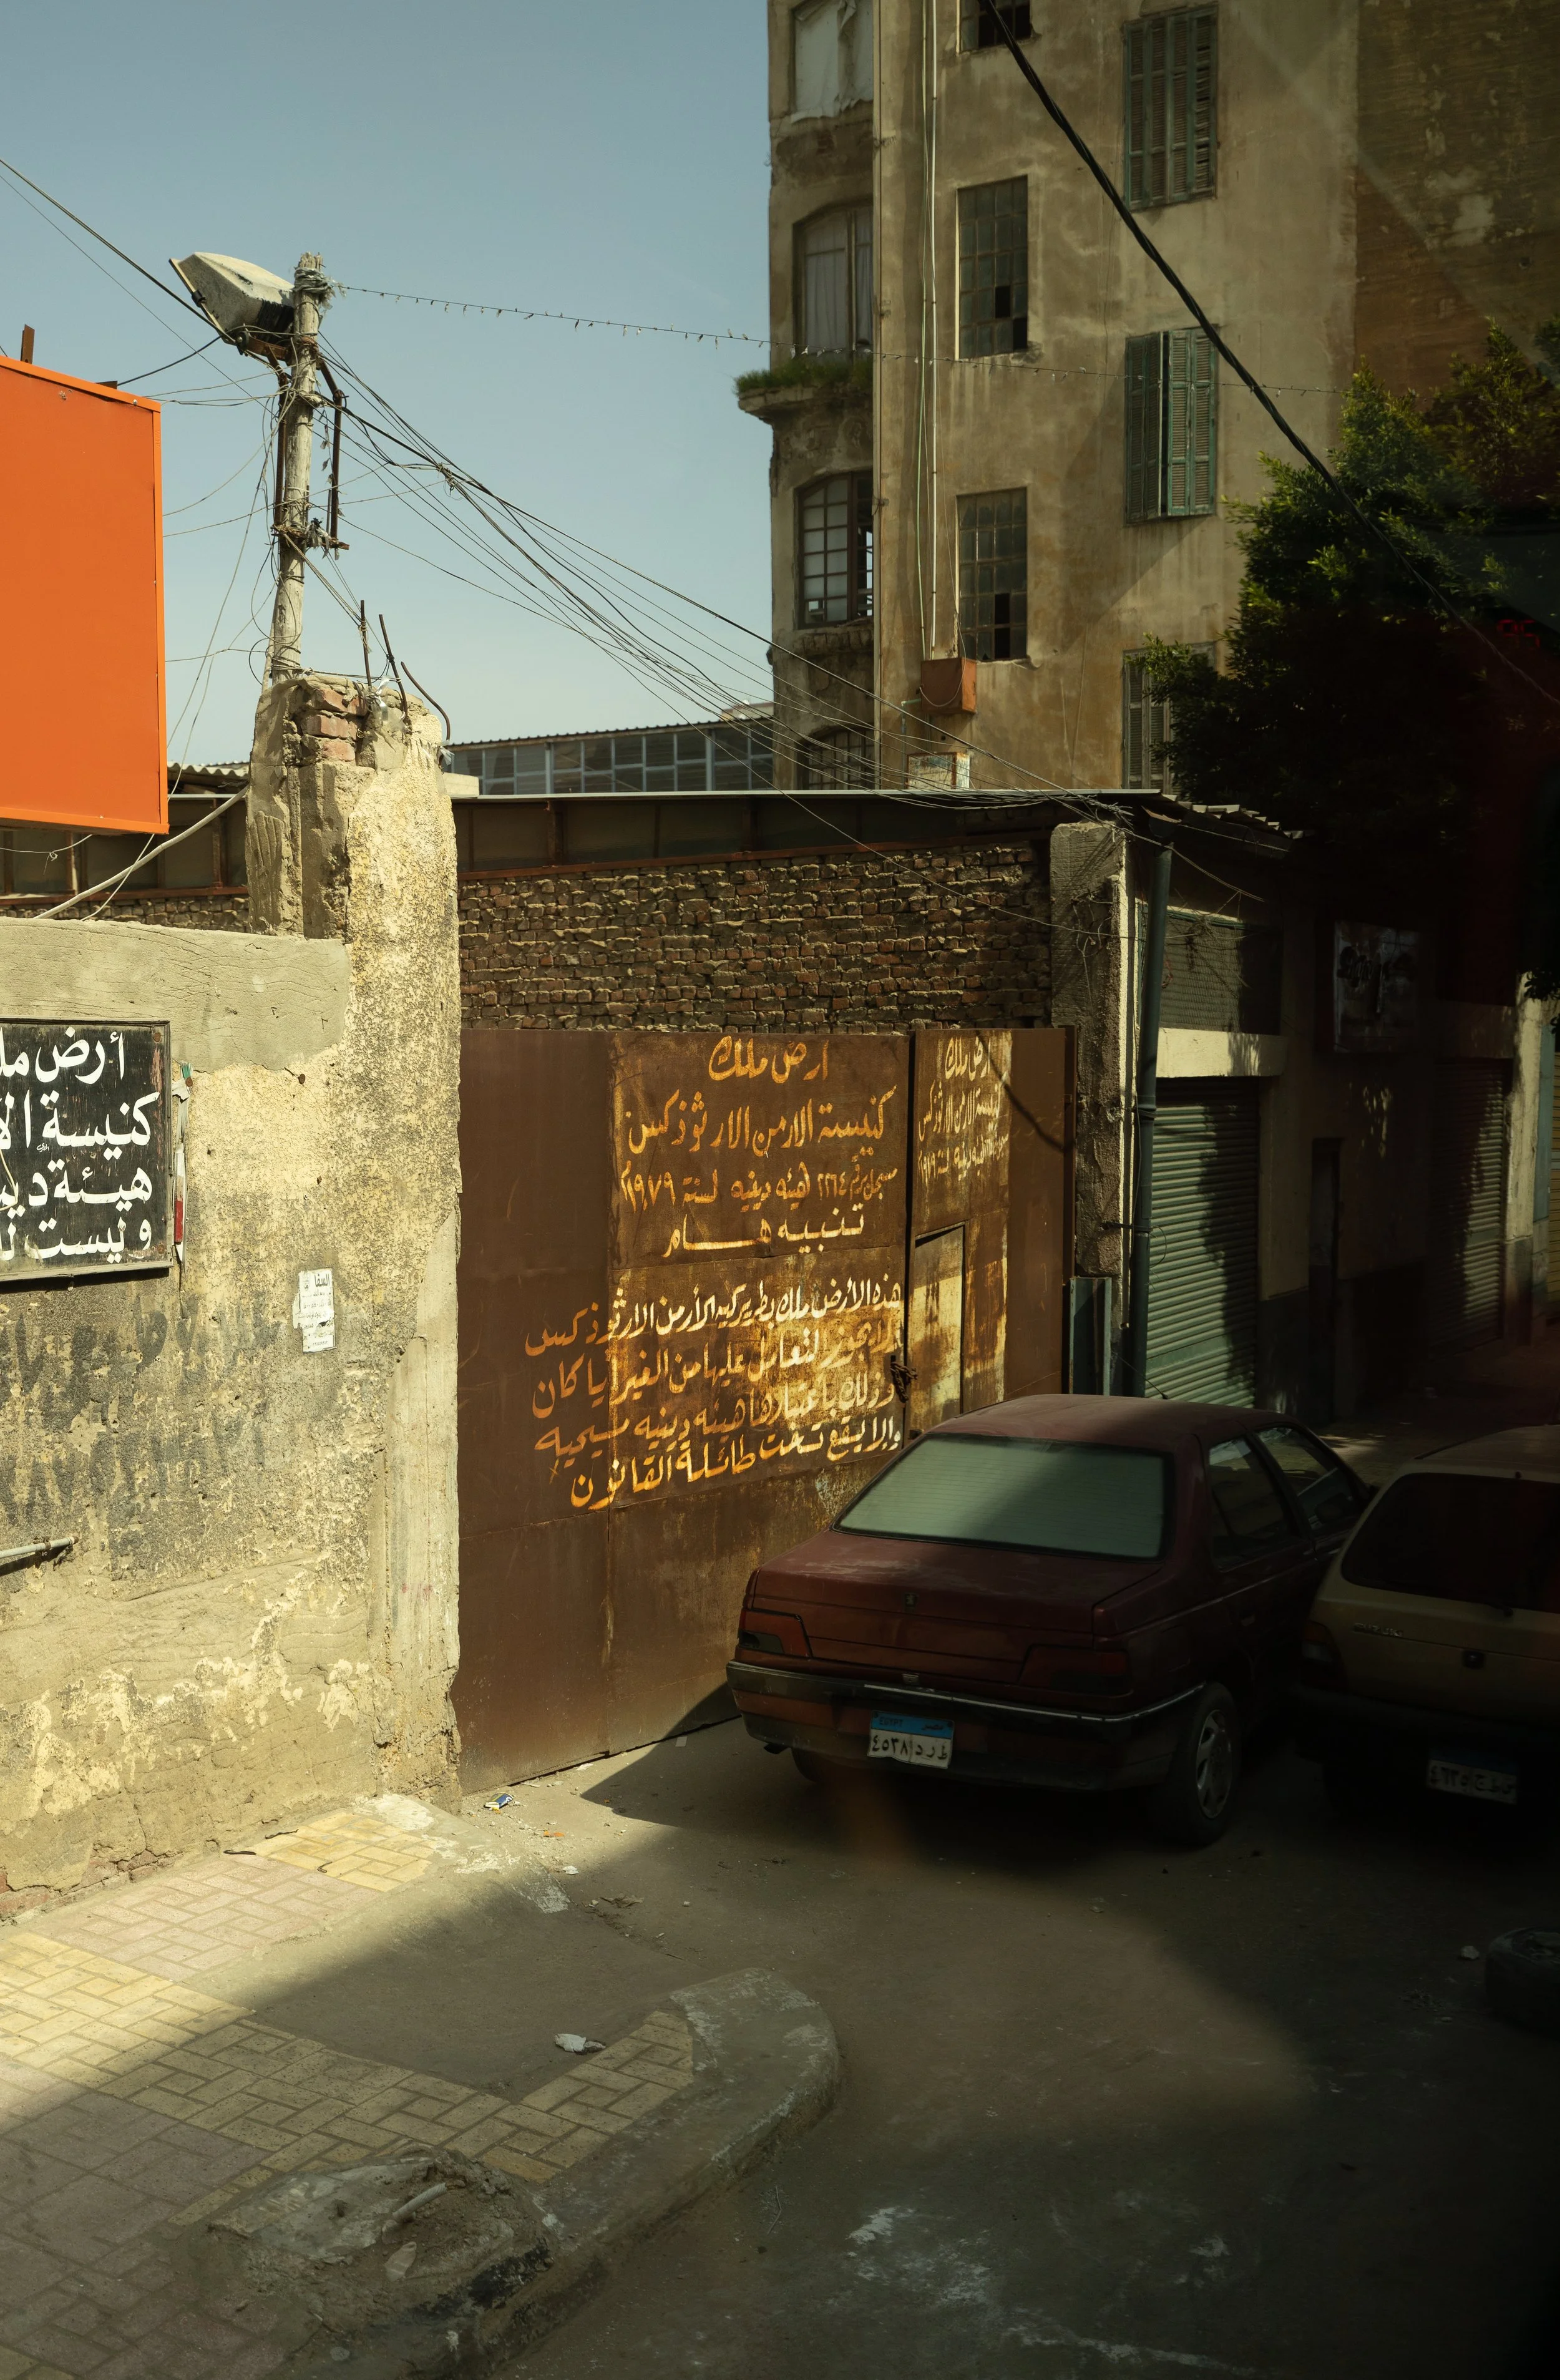 أرض مل
كنيسة ال
هيئة دي
وليست ل
ارض ملك
كنيسة الارمن الارثوذكس
مسجل برقم ١٢٦٤ هيئه دينيه لسنة ١٩٧٩م
تنبيه هــام
هذه الأرض ملك بطريركيه الأرمن الارثوذكس
ولا يجوز التعامل عليها من الغير أيا كان
وذلك باعتبارها هيئه دينيه مسيحيه
والا يقع تحت طائلة القانون
ارض ملك
كنيسة الارمن الارثوذكس
EGYPT مصر
٤٥٣٨ ط ر د
SUZUKI
95